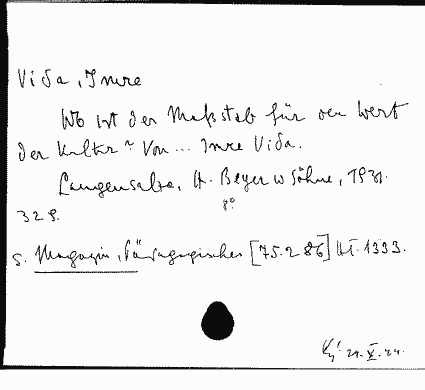 Vida, Imre
Wo ist der Maßstab für den Wert
der Kultur? Von ... Imre Vida.
Langensalza, H. Beyer u Söhne, 1931.
8°
32 S.
S. Magazin, Pädagogisches [75.286] H. 1333.